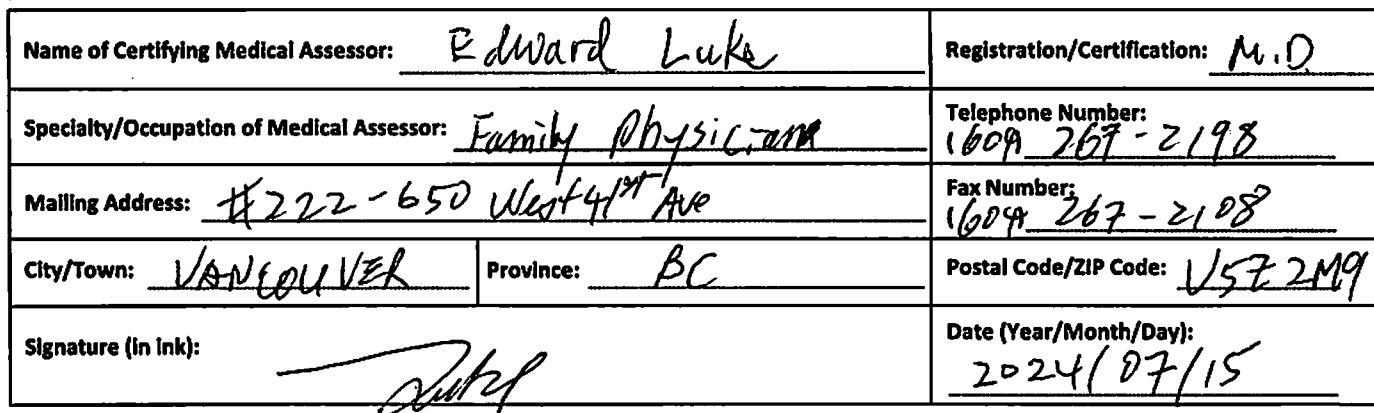 Name of Certifying Medical Assessor: Edward Luke Registration/Certification: M.D.
Specialty/Occupation of Medical Assessor: Family Physician Telephone Number:
(604) 267-2198
Mailing Address: #222-650 West 41st Ave Fax Number:
(604) 267-2108
City/Town: VANCOUVER Province: BC Postal Code/ZIP Code: V5Z 2M9
Signature (in ink): Date (Year/Month/Day):
2024/07/15